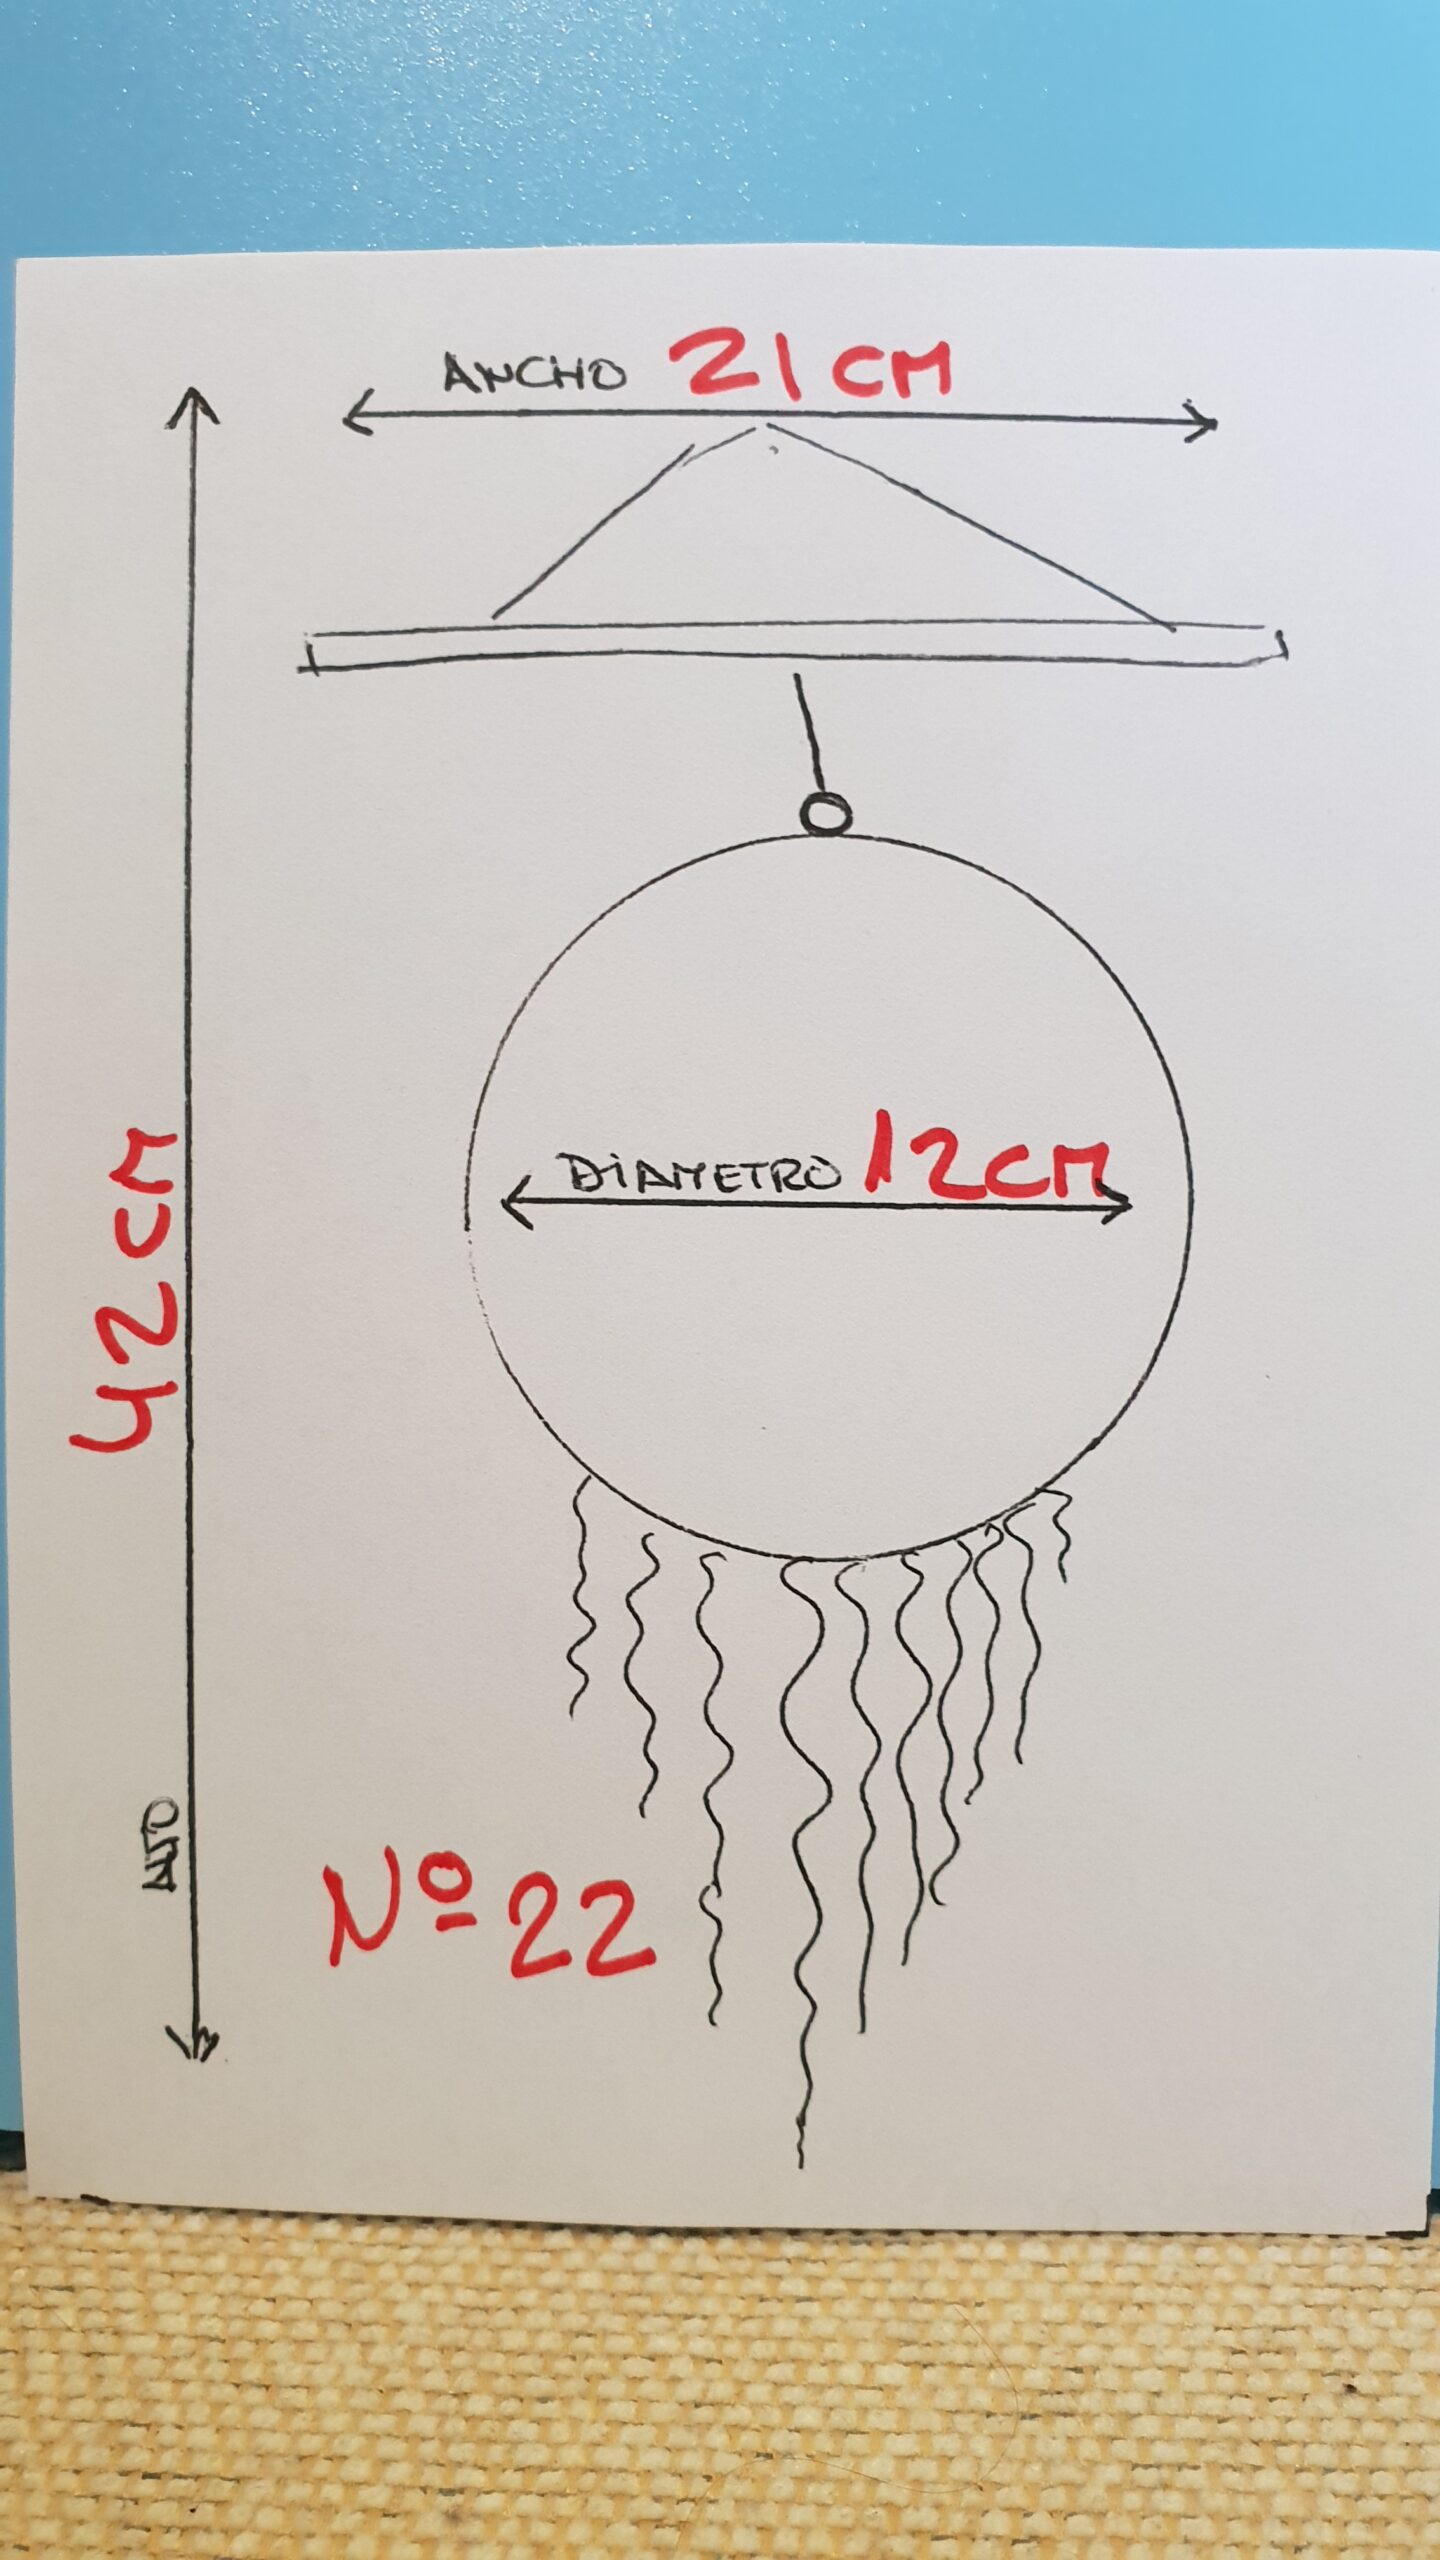 ANCHO 21 CM
DIAMETRO 12CM
42CM
ALTO
Nº 22